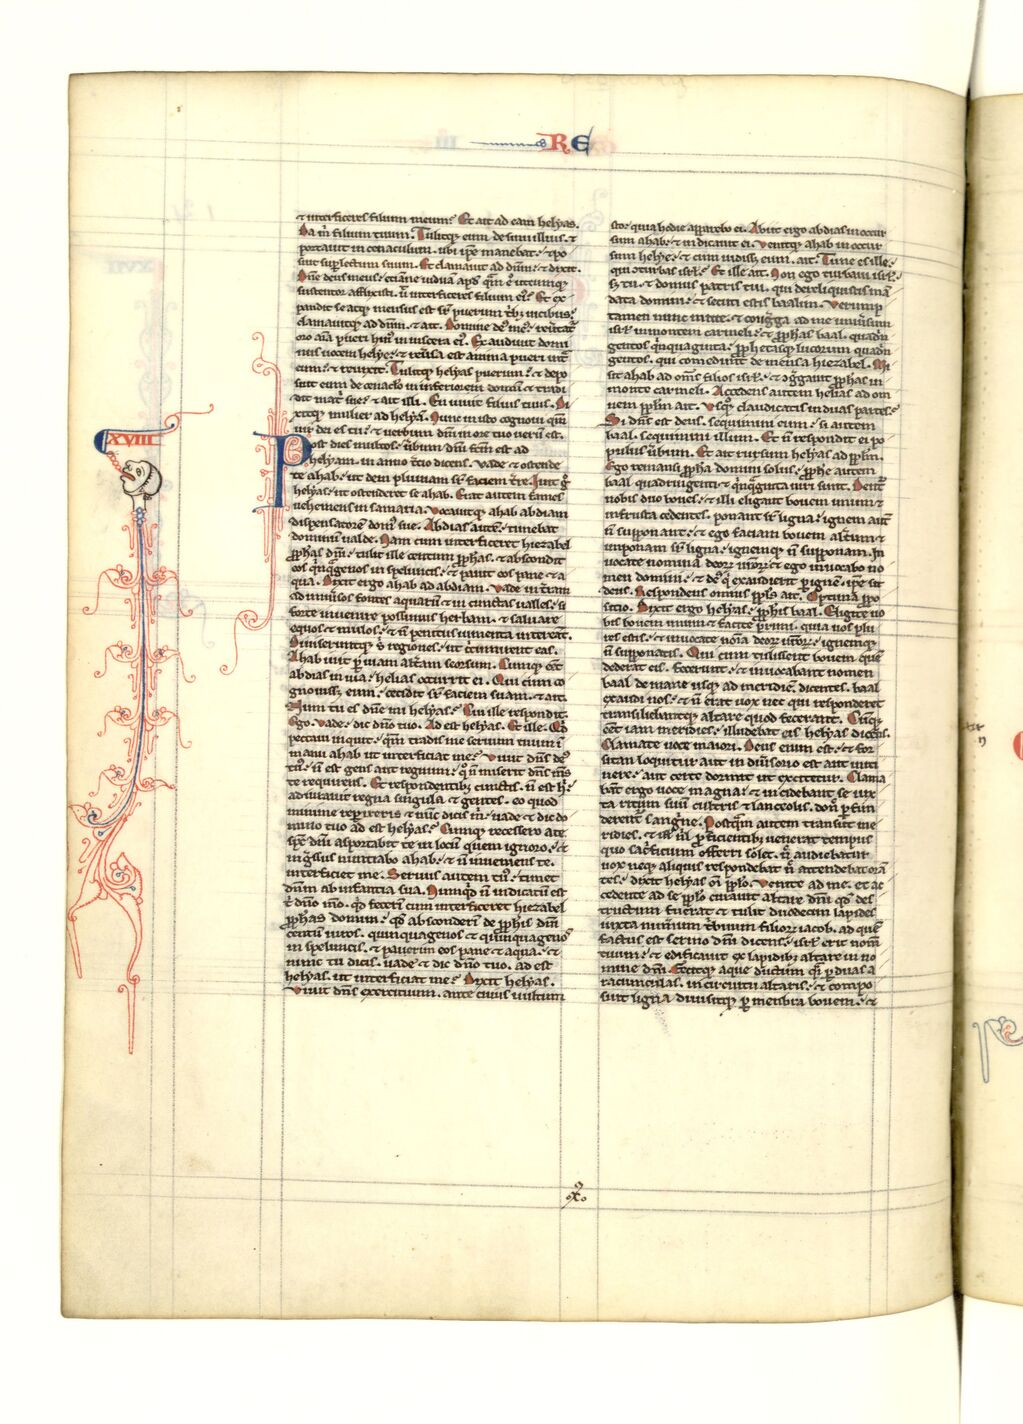 RE
& interficeres filium meum? Et ait ad eam helyas.
Da m̄ filium tuum. Tulitq; eum de sinu illius. &
portauit in cenaculum. ubi ip̄e manebat. & po
suit sup̱ lectum suum. Et clamauit ad dn̄m. & dixit.
Dn̄e deus meus.
sustentor afflixisti. ut interficeres filium ei᷒? Et ex
pandit se atq; mensus est sr̄ puerum t͛b; uicibus.
clamauitq; ad dn̄m. & ait. Domine de᷒ me᷒. reu͛tat͛
oro aīa pueri hui᷒ in uiscera ei᷒. Exaudiuit domi
nus uocem helye. & reu͛sa est anima pueri int͛
eum. & reuixit. Tulitq; helyas puerum. & depo
suit eum de cenac̄lo in inferiorem domū & tradi
dit mat͛ sue. & ait illi. En uiuit filius tuus. Di
xitq; mulier ad helyā. Nunc in isto cognoui qm̄
uir dei es tu. & uerbum dn̄i in ore tuo ueru est.
XVIII
Post dies multos. u͛bum dn̄i fc̄m est ad
helyam. in anno t͛cio dicens. Vade & ostende
te ahab. ut dem pluuiam sr̄ faciem t͛re. Iuit g͛
helyas. ut ostenderet se ahab. Erat autem fames
uehemens in samaria. Vocauitq; ahab abdiam
dispensatorē dom᷒ sue. Abdias aut̄. timebat
dominū ualde. Nam cum interficeret hiezabel
ꝓphas dn̄i. tulit ille centum ꝓphas. & abscondit
eos q͛nq͛genos in speluncis. & pauit eos pane & a
qua. Dixit ergo ahab ad abdiam. Vade in t͛ram
ad uniu͛sos fontes aquarū & in cunctas ualles. si
forte inuenire possimus herbam. & saluare
equos & mulos. & n̄ penitus iumenta intereāt.
Diuiseruntq; s͛ regiones. ut c͛cuirent eas.
Ahab iuit ꝑ uiam alt͛am seorsum. Cumq; eēt
abdias in uia. helias occurrit ei. Qui cum co
gnouiss; eum. cecidit sr̄ faciem suam. & ait.
Num tu es dn̄e mi helyas? Cui ille respondit.
Ego. Vade. dic dn̄o tuo. Ad est helyas. Et ille. Qd̄
peccaui inquit. qm̄ tradis me seruum tuum ī
manu ahab ut interficiat me? Viuit dn̄s de᷒
tu᷒. n̄ est gens aut regnum. q͛ n̄ miserit dn̄s m̄s
te requirens. Et respondentib; cunctis. n̄ est h͛.
adiurauit regna singula & gentes. eo quod
minime repꝑireris. & nūc dicis m̄. uade & dic do
mino tuo ad est helyas? Cumq; recessero a te
sp̄c dn̄i asportabit te in locū quem ignoro. &
ing͛ssus nuntiabo ahab. & n̄ inueniens te.
interficiet me. Seruus autem tu᷒. timet
dn̄m ab infantia sua. Numq͛d n̄ indicatū est
t͛ dn̄o m̄o. qd̄ fecerī cum interficeret hiezabel
ꝓphas domini. qd̄ absconderī de ꝓphis dn̄i
centū uiros. quinquagenos & quinquagenos
in speluncis. & pauerim eos pane & aqua. &
nunc tu dicis. uade & dic dn̄o tuo. ad est
helyas. ut interficiat me? Dixit helyas.
Viuit dn̄s exercituum. ante cuius uultum
sto. quia hodie apparebo ei. Abiit ergo abdias in occur
sum ahab. & indicauit ei. Venitq; ahab in occur
sum helye. & cum uidiss; eum. ait. Tune es ille.
qui c̄turbas isrl̄? Et ille ait. Non ego turbaui isrl̄.
s; tu. & domus patris tui. qui dereliquistis mā
data domini. & secuti estis baalim. Verump̄
tamen nunc mitte. & cong͛ga ad me uniu͛sum
isrl̄ in montem carmeli. & ꝓphas baal. quad͛n
gentos q͛nquaginta. ꝓphetasq; lucorum quad͛n
gentos. qui comedunt de mensa hiezabel. Mi
sit ahab ad om̄s filios isrl̄. & c̄g͛gauit ꝓphas in
monte carmeli. Accedens autem helias ad om
nem ppl̄m ait. Vsq; claudicatis in duas partes?
Si dn̄s est deus. sequimini eum. si autem
baal. sequimini illum. Et n̄ respondit ei po
pulus u͛bum. Et ait rursum helyas ad ppl̄m.
Ego remansi ꝓpha domini solus. ꝓphe autem
baal quadringenti & q͛nq͛ginta uiri sunt. Dent͛
nobis duo boues. & illi eligant bouem unum &
in frusta cedentes. ponant sr̄ ligna. ignem aut̄
n̄ supponant. & ego faciam bouem alt͛um &
imponam sr̄ ligna. ignemq; n̄ supponam. In
uocate nomina deor̄ ur̄or̄ & ego inuocabo no
men domini. & de᷒ q͛ exaudierit ꝑ ignē. ip̄e sit
deus. Respondens omnis ppl̄s ait. Optima ꝓpo
sitio. Dixit ergo helyas. ꝓphis baal. Eligite uo
bis bouem unum & facite primi. quia uos plu
res estis. & inuocate noīa deor̄ ur̄or̄. ignemq;
n̄ supponatis. Qui cum tulissent bouem quē
dederat eis. fecerunt. & inuocabant nomen
baal de mane usq; ad meridiē. dicentes. baal
exaudi nos. & n̄ erat uox nec qui responderet
transiliebantq; altare quod fecerant. Cūq;
eēt iam meridies. illudebat eis helyas dicens.
Clamate uoce maiori. Deus enim est. & for
sitan loquitur aut in diu͛sorio est aut in iti
nere. aut certe dormit ut excitetur. Clama
bāt ergo uoce magna. & incidebant se iux
ta ritum suū cultris & lanceolis. don͛ ꝑfun
derent͛ sang͛ne. Postq͛m autem transiit me
ridies. & ꝓphetantib; uenerat tempus
quo sac͛ficium offerri solet. n͛ audiebatur
uox neq; aliquis respondebat n͛ attendebat orā
tes. dixit helyas om̄i ppl̄o. Venite ad me. et ac
cedente ad se ppl̄o curauit altare dn̄i qd̄ des
tructum fuerat & tulit duodecim lapides
iuxta numerum t͛buum filior̄ iacob. ad quē
factus est sermo dn̄i dicens. isrl̄ erit nom̄
tuum. & edificauit ex lapidib; altare in no
mine dn̄i. Fecitq; aque ductum q͛si ꝑ duas a
ratiunculas. in circuitu altaris. & compo
suit ligna diuisitq; ꝑ membra bouem. &